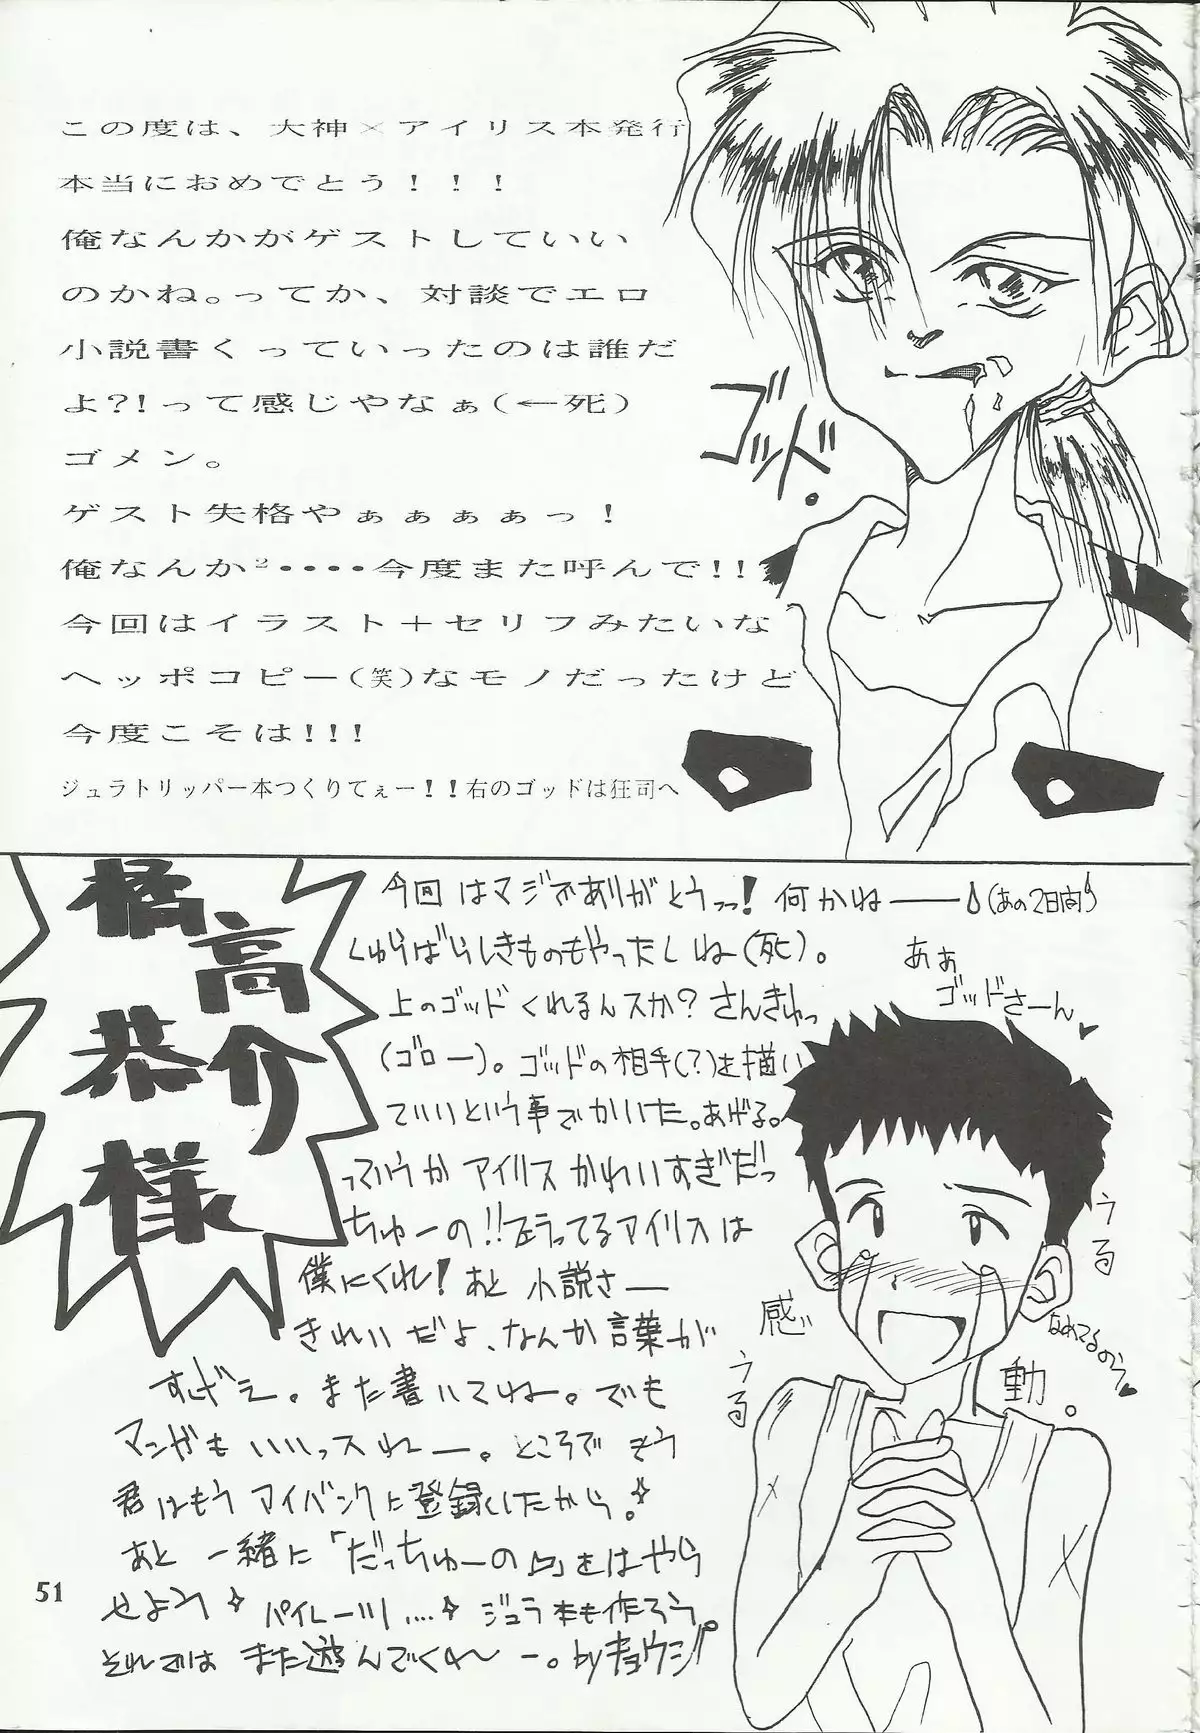 この度は、大神×アイリス本発行
本当におめでとう！！！
俺なんかがゲストしていい
のかね。ってか、対談でエロ
小説書くっていったのは誰だ
よ?!って感じやなぁ(←死)
ゴメン。
ゲスト失格やぁぁぁぁっ！
俺なんか²・・・・今度また呼んで!!
今回はイラスト＋セリフみたいな
ヘッポコピー(笑)なモノだったけど
今度こそは!!!
ジュラトリッパー本つくりてぇー！！右のゴッドは狂司へ
ゴッド。
橘高
恭介
様
今回はマジでありがとうっっ！何かね――(あの2日間)
しゅらばらしきものもやったしね(死)。
上のゴッドくれるんスか？さんきゅっ
(ゴロー)。ゴッドの相手(?)を描い
ていいという事でかいた。あげる。
っていうかアイリスかわいすぎだっ
ちゅーの!!左うってるアイリスは
僕にくれ！あと小説さ―
きれいだよ、なんか言葉が
すげぇ。また書いてねー。でも
マンガもいいっスねー。ところで
君はもうアイバンクに登録したから。
あと一緒に「だっちゅーの」をはやら
せよう パイレーツ‥‥ ジュラ本も作ろう。
それでは また遊んでくれ〜ー。byキョウジ
ああ
ゴッドさーん
うる
うる
感
動。
なめてるのう
51